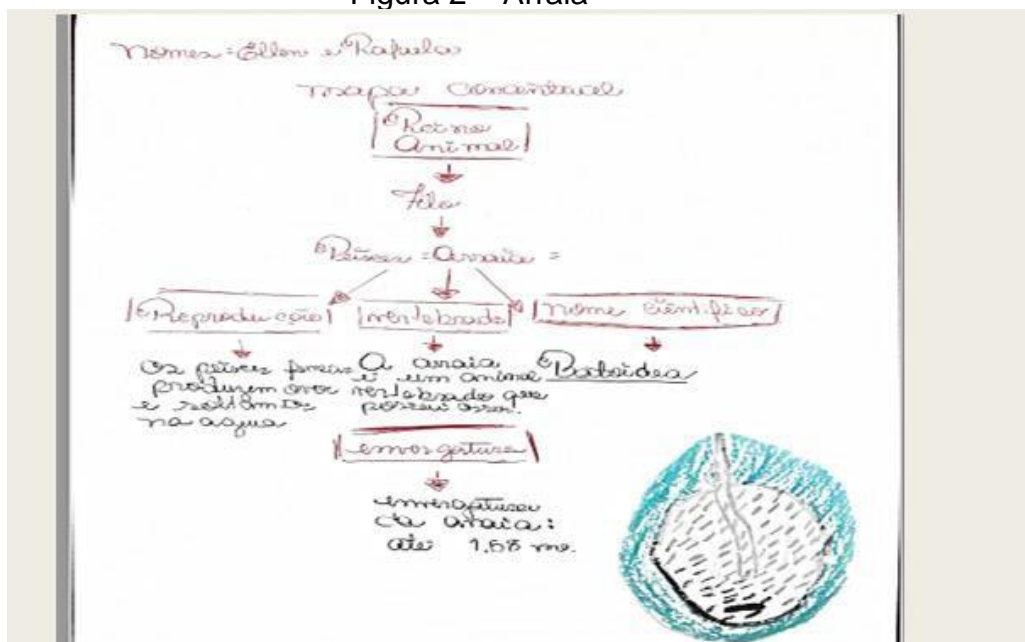 Figura 2 – Arraia
Nomes = Ellen e Rafaela
mapa Conceitual
Reino
Animal
Filo
Peixes = Arraia =
Reprodução
vertebrado
nome científico
Os peixes fêmeas
produzem ovos
e soltam
na agua
A araia
é um animal
vertebrado que
possui
Batoidea
envergatura
envergatura
da araia:
até 1,68 m.